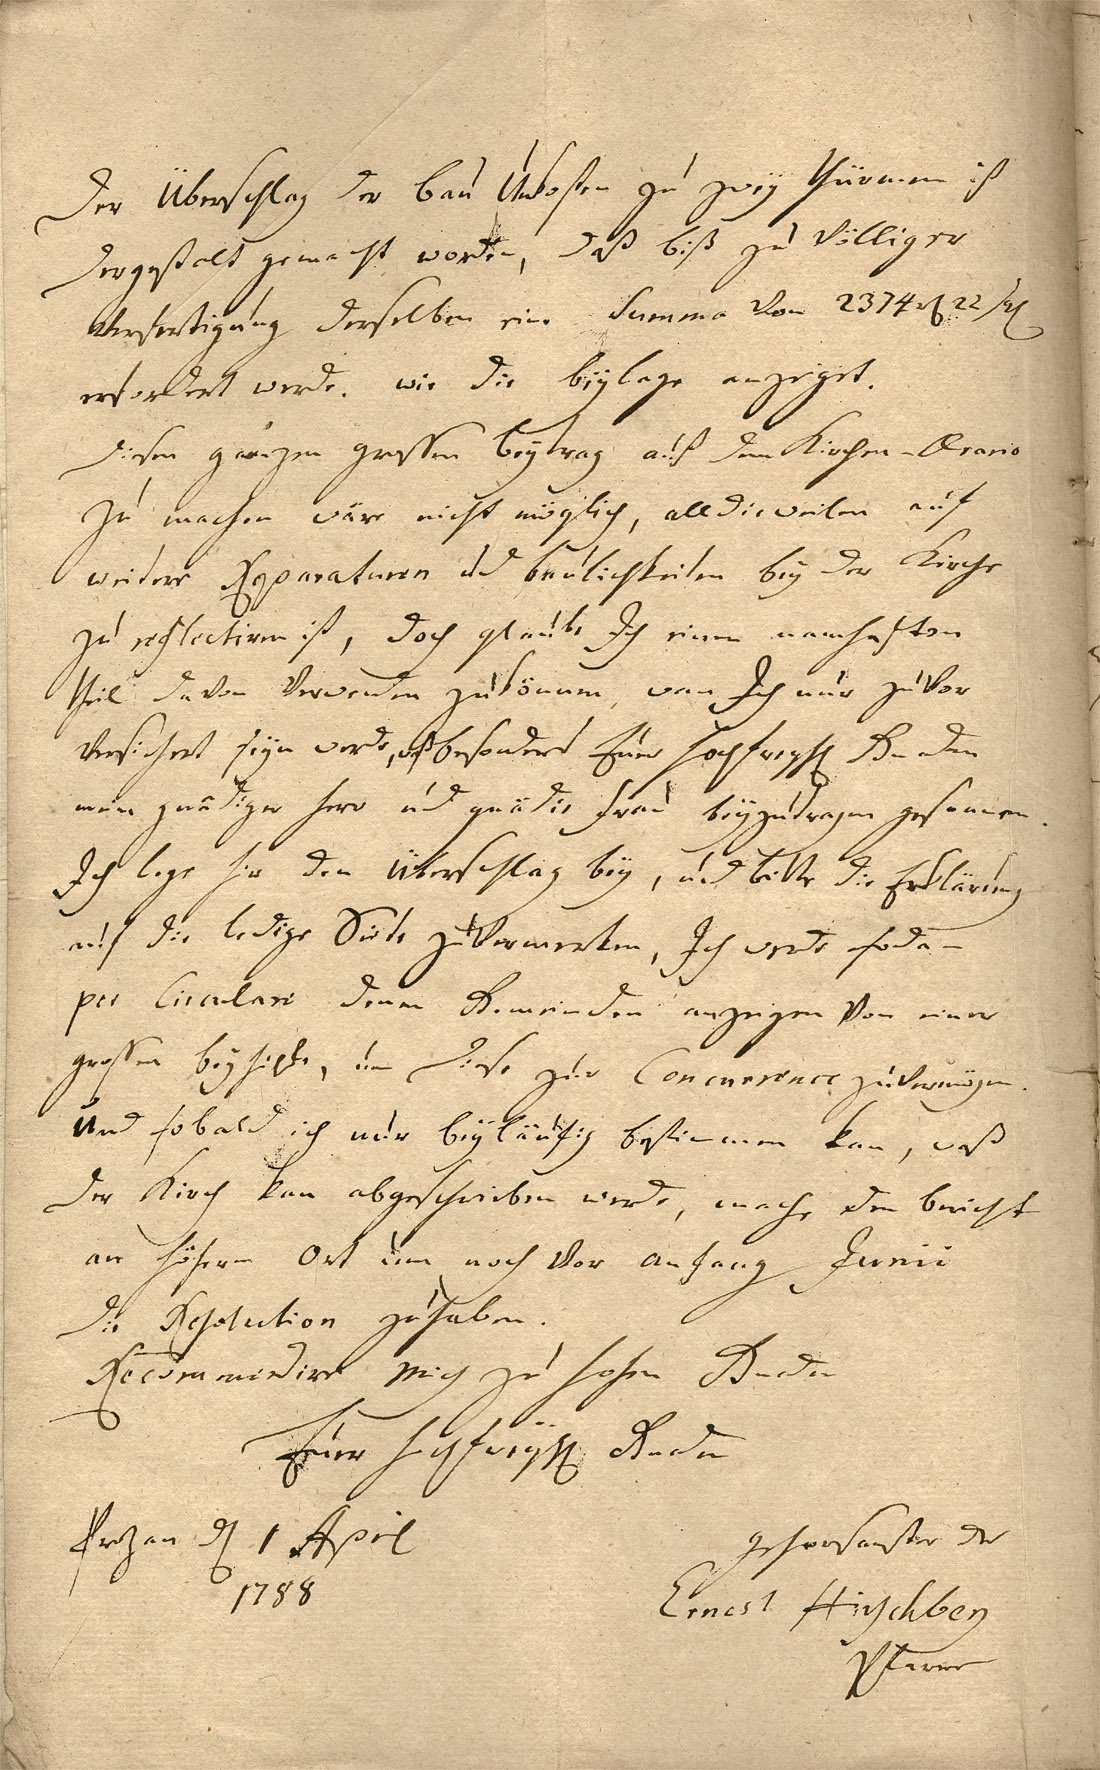 Der Überschlag der bau Unkosten zu zwey thürmen ist
dergestalt gemacht worden, daß biß zu völliger
Verfertigung derselben eine Summa von 2374 22
erfordert werde. wie die beylage anzeiget.
Diesen gantzen grossen beytrag auß dem Kirchen-Ærario
zu machen wäre nicht möglich, alldieweilen auf
weitere Reparaturen und baulichkeiten bey der Kirche
zu reflectiren ist, doch glaube Ich einen namhafften
theil davon verwenden zukönnen, wan Ich nur zuvor
versichert seyn werde, besonders Euer Hochfreyh Gnaden
mein gnädiger herr und gnädie frau beyzutragen gesonnen.
Ich lege hir den Überschlag bey, und bitte die Erklärung
auf die ledige Seite zuvermerken, Ich werde soda-
per Circulare denen Gemeinden anzeigen von einer
grossen beyhilfe, um diese zur Concurrence zuvermögen.
Und sobald ich nur beyläufig bestimmen kan, waß
der Kirch kan abgeschrieben werde, mache den bericht
an höhern Ort um noch vor anfang Junii
die Resolution zuhaben.
Recommendire mich zu hohen Gnaden
Euer Hochfreyh Gnaden
Protzan d 1 April
1788
gehorsamster der
Ernest Hirschberg
Pfarrer